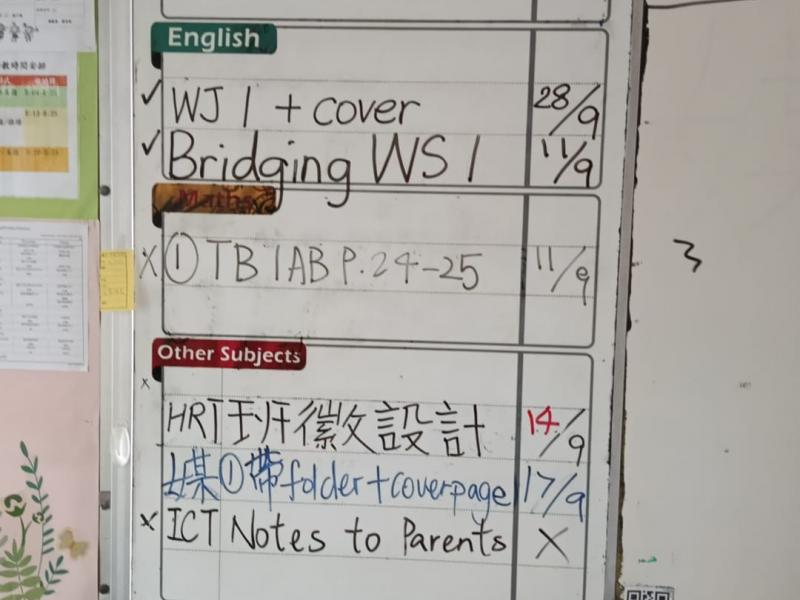 English
✓ WJ 1 + cover 28/9
✓ Bridging WS 1 11/9
Maths
X ① TB 1AB P.24-25 11/9
3
Other Subjects
x
HRT 班徽設計 14/9
媒①帶folder+coverpage 17/9
x ICT Notes to Parents X